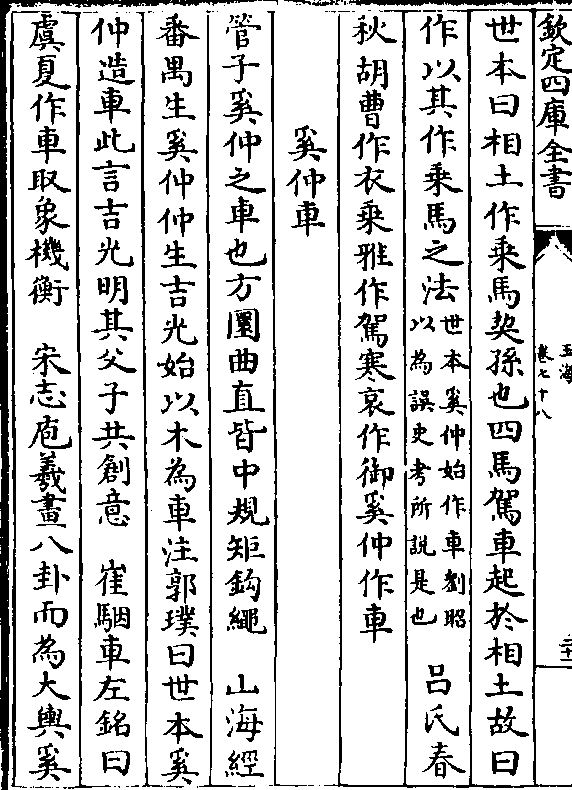 欽定四庫全書
玉海
卷七十八
世本曰相土作乘馬契孫也四馬駕車起於相土故曰
作以其作乘馬之法世本奚仲始作車劉昭以為誤史考所說是也 呂氏春
秋胡曹作衣乘雅作駕寒哀作御奚仲作車
奚仲車
管子奚仲之車也方圜曲直皆中規矩鈎繩 山海經
番禺生奚仲仲生吉光始以木為車注郭璞曰世本奚
仲造車此言吉光明其父子共創意 崔駰車左銘曰
虞夏作車取象機衡 宋志庖羲畫八卦而為大輿奚